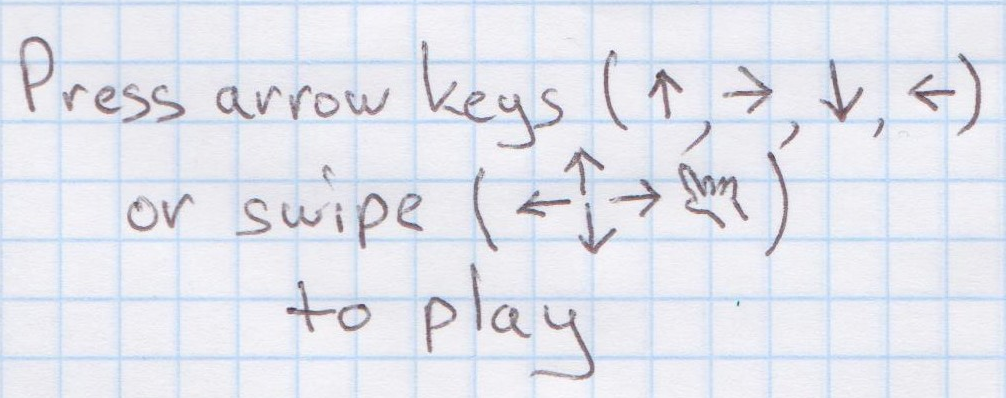 Press arrow keys (↑, →, ↓, ←)
or swipe (←↑↓→)
to play